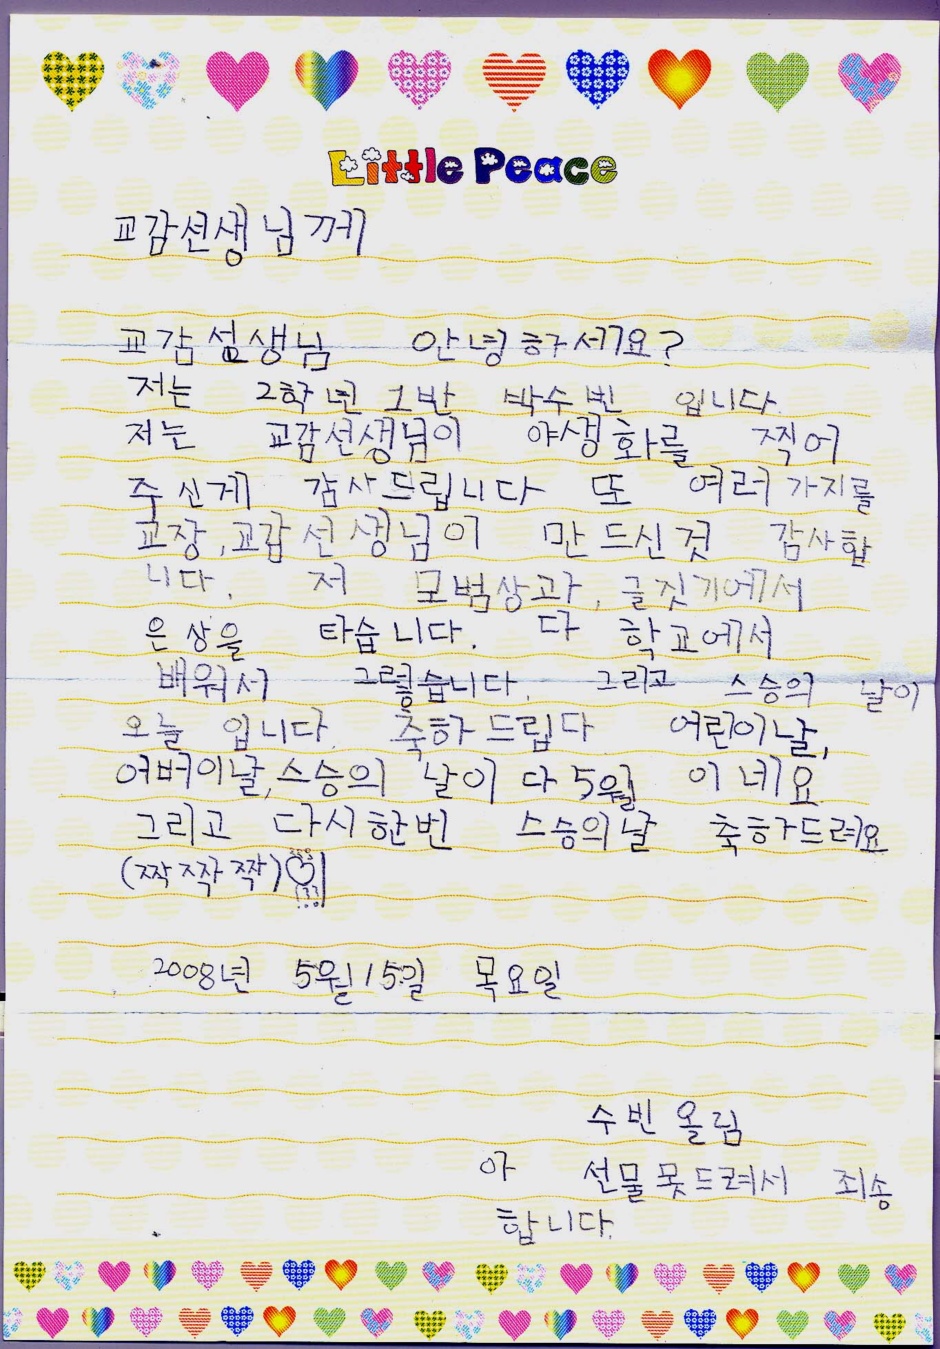 Little Peace
교감선생님께
교감섬생님 안녕하세요?
저는 2학년 1반 박수빈 입니다.
저는 교감선생님이 야생화를 찍어
주신게 감사드립니다 또 여러가지를
교장, 교감선생님이 만드신것 감사합
니다. 저 모범상과, 글짓기에서
은상을 타습니다. 다 학교에서
배워서 그렇습니다. 그리고 스승의 날이
오늘 입니다. 축하드립다 어린이날,
어버이날, 스승의 날이 다 5월 이네요
그리고 다시한번 스승의날 축하드려요
(짝짝짝)
2008년 5월 15일 목요일
수빈 올림
아 선물 못드려서 죄송
합니다.